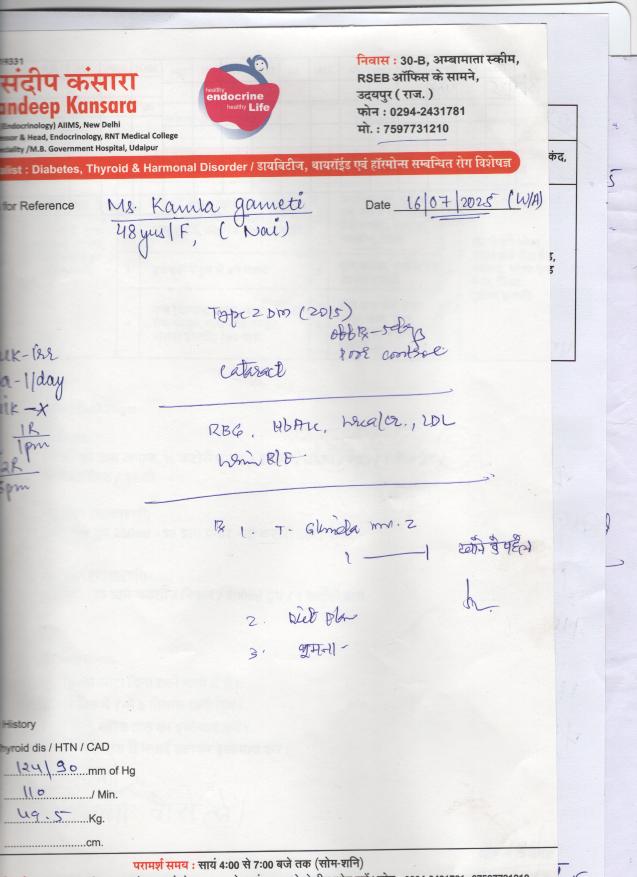 19331
संदीप कंसारा
andeep Kansara
(Endocrinology) AIIMS, New Delhi
essor & Head, Endocrinology, RNT Medical College
eciality /M.B. Government Hospital, Udaipur
healthy
endocrine
healthy Life
निवास : 30-B, अम्बामाता स्कीम,
RSEB ऑफिस के सामने,
उदयपुर ( राज. )
फोन : 0294-2431781
मो. : 7597731210
alist : Diabetes, Thyroid & Harmonal Disorder / डायबिटीज, थायरॉईड एवं हॉरमोन्स सम्बन्धित रोग विशेषज्ञ
for Reference Ms. Kamla gameti Date 16/07/2025 (W/A)
48yrs/F, ( Nai )
Type 2 DM (2015)
poor control
Cataract
a-1/day
1R
1pm
2R
RBG, HbA1c, Urea/cr., LDL
Urine R/E
Rx 1. T. 2
1 1 खाने से पहले
2. Diet plan
3. घूमना -
History
hyroid dis / HTN / CAD
124/90 mm of Hg
110 / Min.
49.5 Kg.
cm.
परामर्श समय : सायं 4:00 से 7:00 बजे तक (सोम-शनि)
कंद,